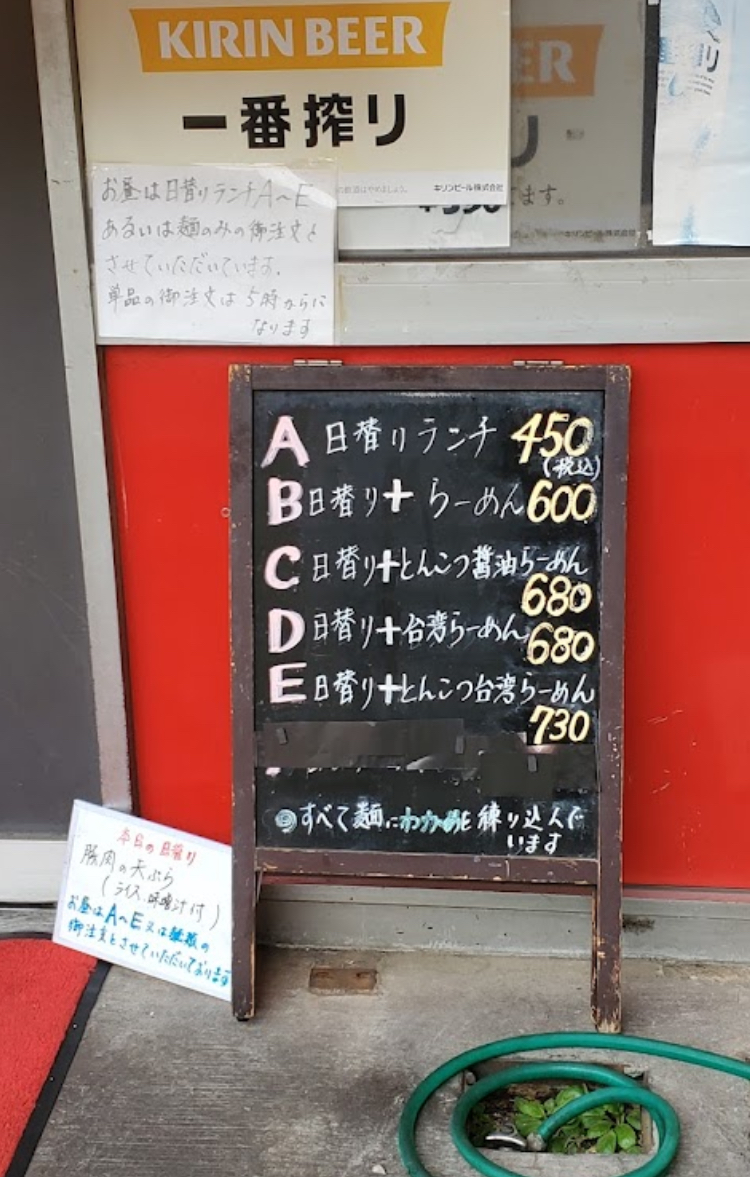 KIRIN BEER
一番搾り
の飲酒はやめましょう。
キリンビール株式会社
ER
り
ます。
キリンビール株式会社
お昼は日替りランチA〜E
あるいは麺のみの御注文と
させていただいています.
単品の御注文は5時からに
なります
A 日替りランチ 450
(税込)
B 日替り+らーめん 600
C 日替り+とんこつ醤油らーめん
680
D 日替り+台湾らーめん 680
E 日替り+とんこつ台湾らーめん
730
◎すべて麺にわかめを練り込んで
います
本日の日替り
豚肉の天ぷら
(ライス、味噌汁付)
お昼はA〜E又は麺類の
御注文とさせていただいております